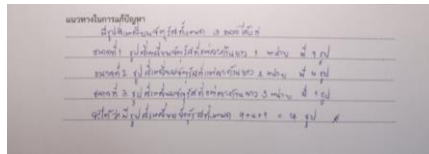 แนวทางในการแก้ปัญหา
มีรูปสี่เหลี่ยมจัตุรัสทั้งหมด 3 ขนาดคือ
ขนาดที่ 1 รูปสี่เหลี่ยมจัตุรัสที่แต่ละด้านยาว 1 หน่วย มี 9 รูป
ขนาดที่ 2 รูปสี่เหลี่ยมจัตุรัสที่แต่ละด้านยาว 2 หน่วย มี 4 รูป
ขนาดที่ 3 รูปสี่เหลี่ยมจัตุรัสที่แต่ละด้านยาว 3 หน่วย มี 1 รูป
จะได้ว่ามีรูปสี่เหลี่ยมจัตุรัสทั้งหมด 9+4+1 = 14 รูป